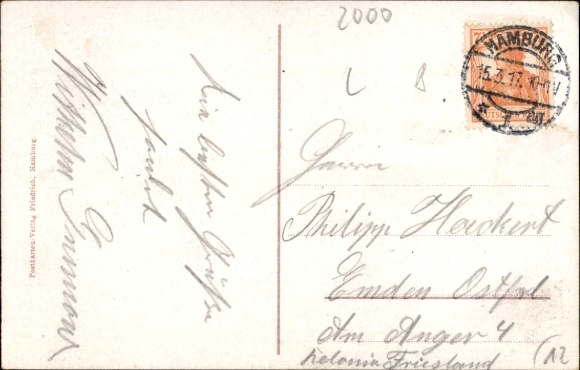 2000
L B
HAMBURG
15.3.17.
1
Die besten Grüße
sendet
Wilhelm
Herrn
Philipp Hackert
Emden Ostfrl
Am Anger 4
Kolonie Friesland
A2
Postkarten-Verlag Friedrich, Hamburg